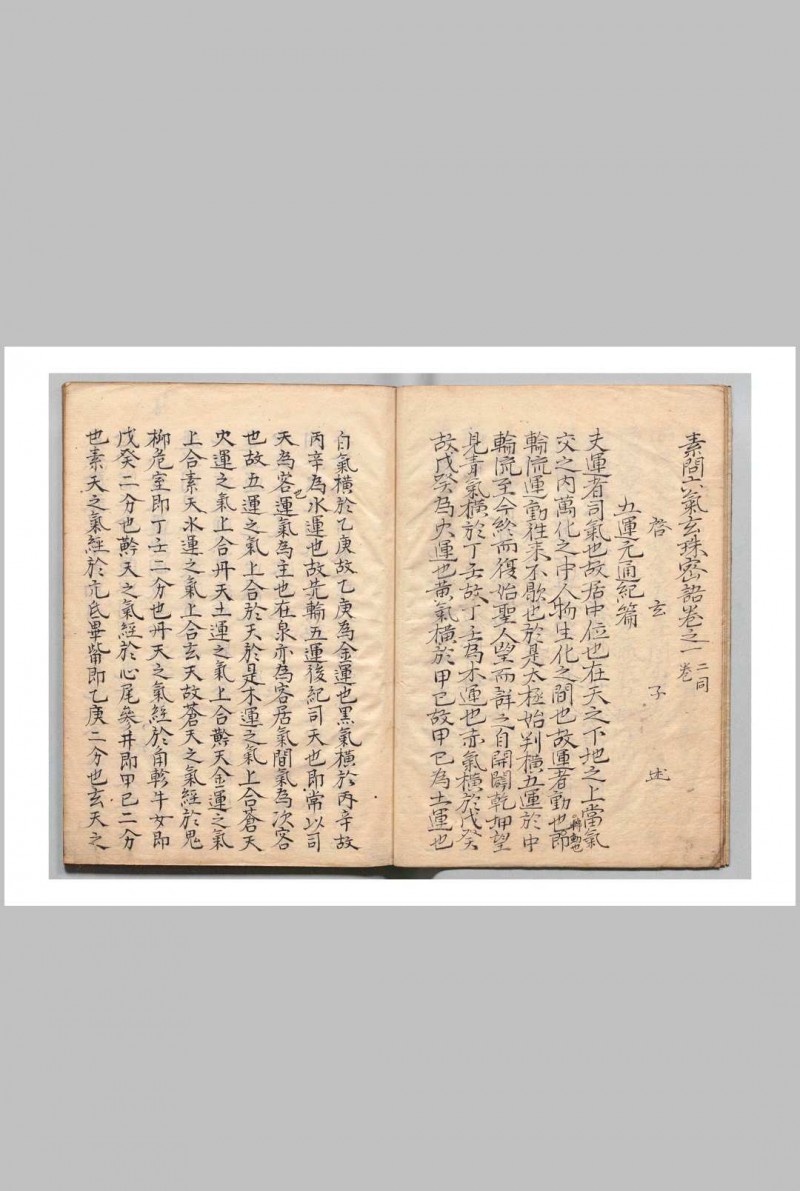 素問六氣玄珠密語卷之一 二同卷
啓玄子述
五運元通紀篇
夫運者司氣也故居中位也在天之下地之上當氣
交之內萬化之中人物生化之間也故運者動也即
輪動也
輪流運動徃来不歇也於是太極始判橫五運於中
輪流至今終而復始聖人望而詳之自開闢乾坤望
見青氣橫於丁壬故丁壬為木運也赤氣橫於戊癸
故戊癸為火運也黃氣橫於甲己故甲己為土運也
白氣橫於乙庚故乙庚為金運也黑氣橫於丙辛故
丙辛為水運也故先輪五運後紀司天也即常以司
天為客運氣為主也在泉亦為客居氣間氣為次客
也
也故五運之氣上合於天於是木運之氣上合蒼天
火運之氣上合丹天土運之氣上合黅天金運之氣
上合素天水運之氣上合玄天故蒼天之氣經於鬼
柳危室即丁壬二分也丹天之氣經於角軫牛女即
戊癸二分也黅天之氣經於心尾參井即甲己二分
也素天之氣經於亢氐畢觜即乙庚二分也玄天之